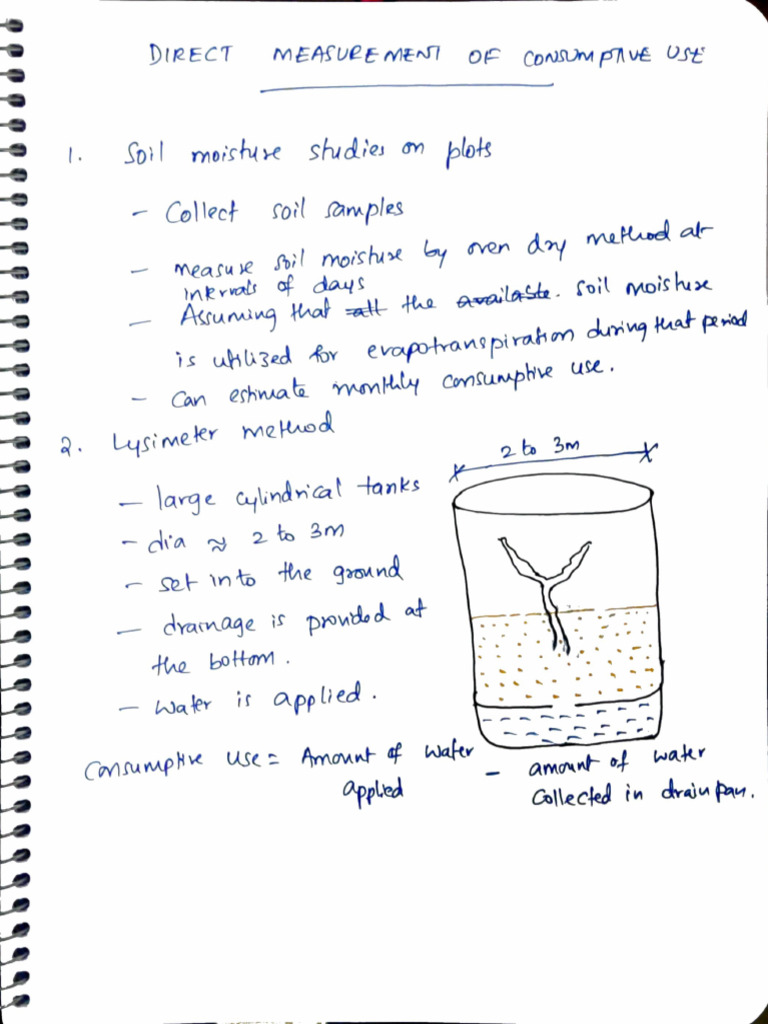 DIRECT MEASUREMENT OF CONSUMPTIVE USE
1. Soil moisture studies on plots
- Collect soil samples
- measure soil moisture by oven dry method at
intervals of days
- Assuming that all the available. soil moisture
is utilized for evapotranspiration during that period
- Can estimate monthly consumptive use.
2. Lysimeter method
2 to 3m
- large cylindrical tanks
- dia ≈ 2 to 3m
- set into the ground
- drainage is provided at
the bottom.
- Water is applied.
Consumptive Use = Amount of Water applied - amount of water
Collected in drain pan.